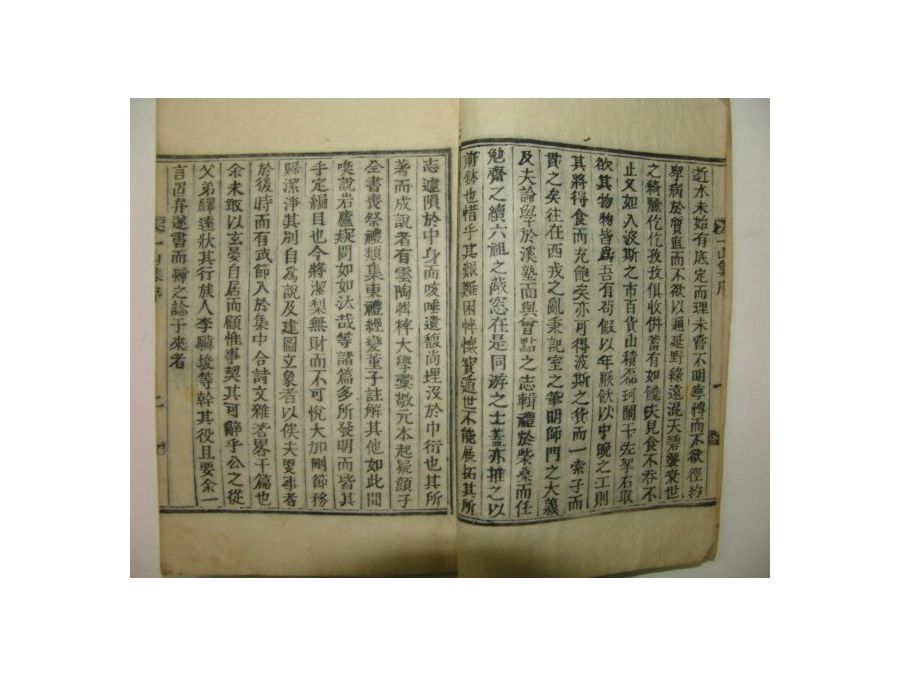 一山集序
逝水未始有底定而理未嘗不明寧博而不欲徑約
寧病於質直而不欲以過延野綠遠混天碧襲衰世
之綺麗忔忔孜孜俱收併蓄有如饞夫見食不吞不
止又如入波斯之市百貨山積磊珂闌干左挈右取
欲其物物皆爲吾有苟假以年厭飫以中晚之工則
其將得食而充飽矣亦可得波斯之貨而一索子而
貫之矣往在西戎之亂秉記室之筆明師門之大義
及夫論學於溪塾而與曾點之志輯禮於柴桑而任
勉齋之續六祖之蔽窓在是同游之士蓋亦推之以
前鉢也惜乎其艱難困悴懷寶遁世不能展拓其所
志遽隕於中身而咳唾遺馥尚埋沒於中衍也其所
著而成說者有雲陶輯粹大學彙敬元本起疑顔子
全書喪祭禮類集東禮經變董子註解其他如此問
喚說岩廬疑問如如汰哉等諸篇多所發明而皆其
手定編目也今將潔梨無財而不可悅大加刪節務
歸潔淨其別自為說及建圖立象者以俟夫愛事者
於後時而有武師入於集中合詩文雜著畧干篇也
余未敢以玄晏自居而顧惟事契其可辭乎公之從
父弟驛遠狀其行族人李驌埈等幹其役且要余一
言置弁遂書而歸之諗于來者